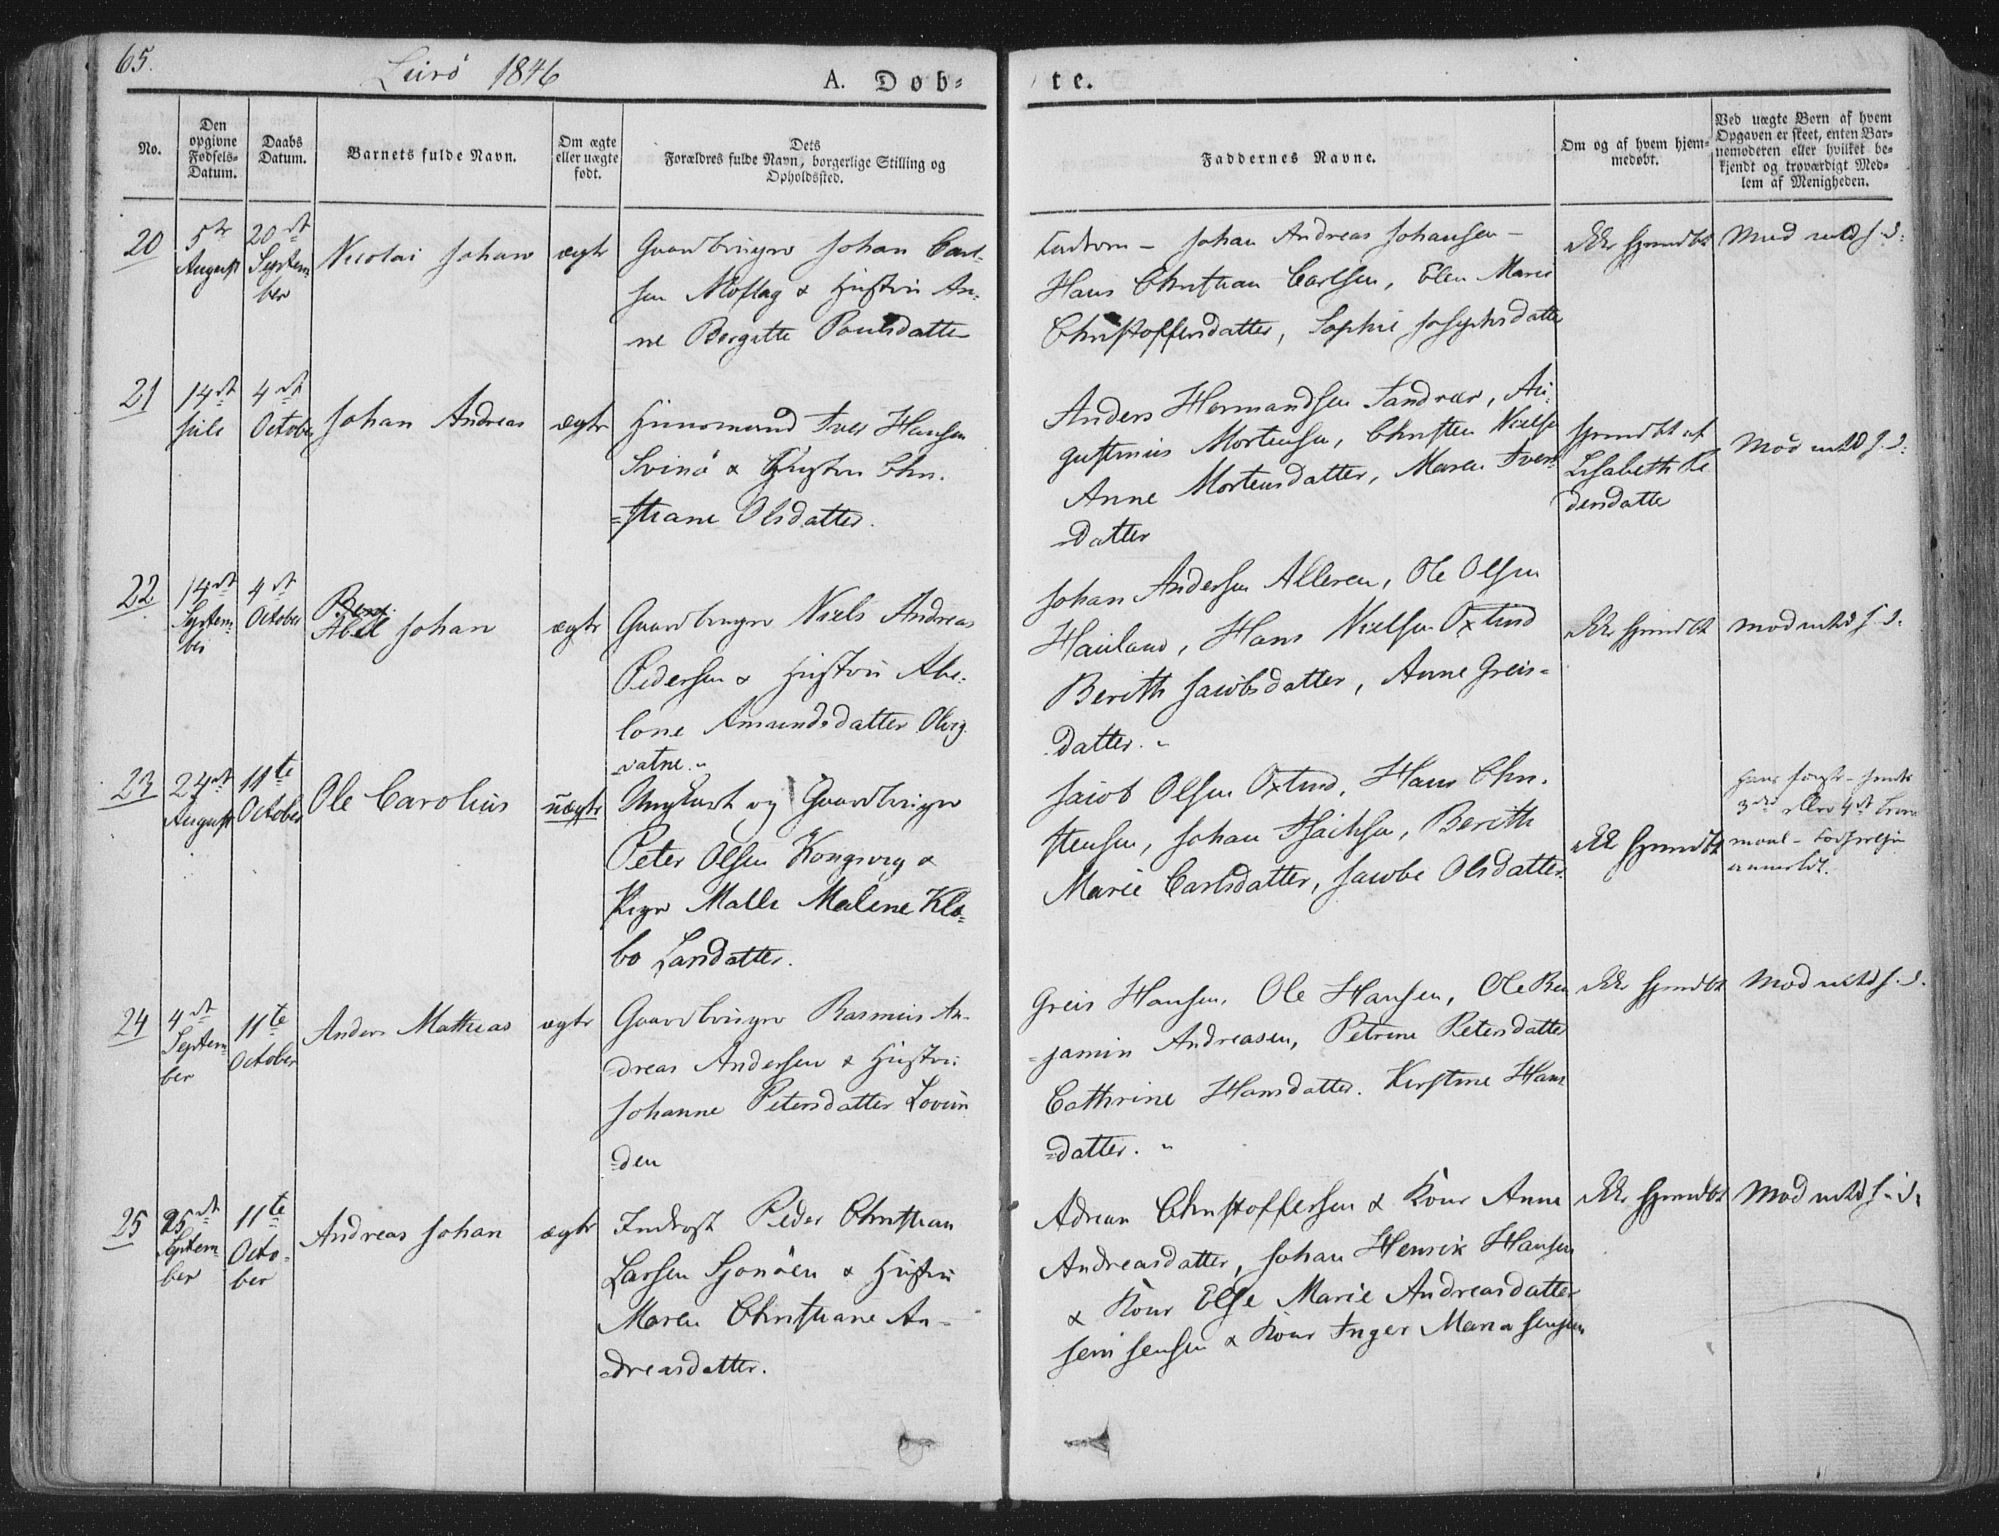 65.
Lurö 1846
A. Døb-
te.
No.
Den opgivne Fødsels-Datum.
Daabs Datum.
Barnets fulde Navn.
Om ægte eller uægte født.
Dets Forældres fulde Navn, borgerlige Stilling og Opholdssted.
Faddernes Navne.
Om og af hvem hjem-medøbt.
Ved uægte Børn af hvem Opgaven er skeet, enten Bar-nemoderen eller hvilket be-kjendt og troværdigt Med-lem af Menigheden.
20
5te August
20de Septem-ber
Nicolai Johan
ægte
Gaardbruger Johan Carl-
sen & Hustru An-
ne Bergitte Poulsdatter
Johan Andreas Johansen -
Hans Christian Carlsen, Elen Marie
Christoffersdatter, Sophie Josephsdatter
Ikke hjemdøbt
21
14de Juli
4de October
Johan Andreas
ægte
Huusmand Iver Hansen
Svinö & Hustru Chri-
=stiane Olsdatter.
Anders Hermandsen Sandvær, Au-
gustinius Mortensen, Christen Nielsen
Anne Mortensdatter, Maren Ivers-
datter
hjemdøbt af
Lisabeth Pe
dersdatter
22
14de Septem-ber
4de October
Johan
ægte
Gaardbruger Niels Andreas
Pedersen & Hustru Abe-
lone Amundsdatter Olvig
vatne.
Johan Andersen Alleren, Ole Olsen
Hauland, Hans Nielsen Oxtind
Berith Jacobsdatter, Anne Greis-
datter.
Ikke hjemdøbt
23
24de August
11te October
Ole Carolius
uægte
Ungkarl og Gaardbruger
Peter Olsen Kongsvig &
Pige Malle Malene Klo-
bo Larsdatter.
Jacob Olsen Oxtind, Hans Chri-
stensen, Johan Isachsen, Berith
Marie Carlsdatter, Jacobe Olsdatter
ikke hjemdøbt
3die eller 4de
24
4de Septem-ber
11te October
Anders Mathias
ægte
Gaardbruger Rasmus An-
dreas Andersen & Hustru
Johanne Petersdatter Lovun
=den
Greis Hansen, Ole Hansen, Ole Ben
=jamin Andreasen, Petrine Petersdatter
Cathrine Hansdatter. Kirstine Hans
=datter.
Ikke hjemdøbt
25
25de Septem-ber
11te Octo-ber
Andreas Johan
ægte
Inderst Peder Christian
Larsen Sjonöen & Hustru
Maren Christiane An-
=dreasdatter.
Adrian Christoffersen & Kone Anne
Andreasdatter, Johan Henrik Hansen
& Kone Else Marie Andreasdatter
Jens Jensen & Kone Inger Maria Jensen
Ikke hjemdøbt